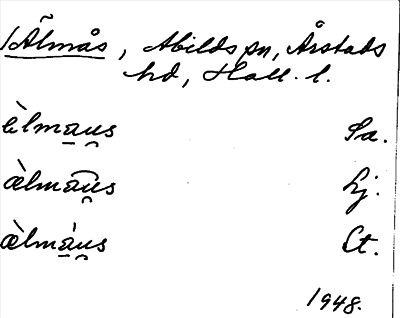 Älmås, Abilds sn, Årstads
hd, Hall. l.
èlma̲u̯s Sa.
æ̀lma͡u̯s Lj.
æ̀lmá̲u̯s Ct.
1948.